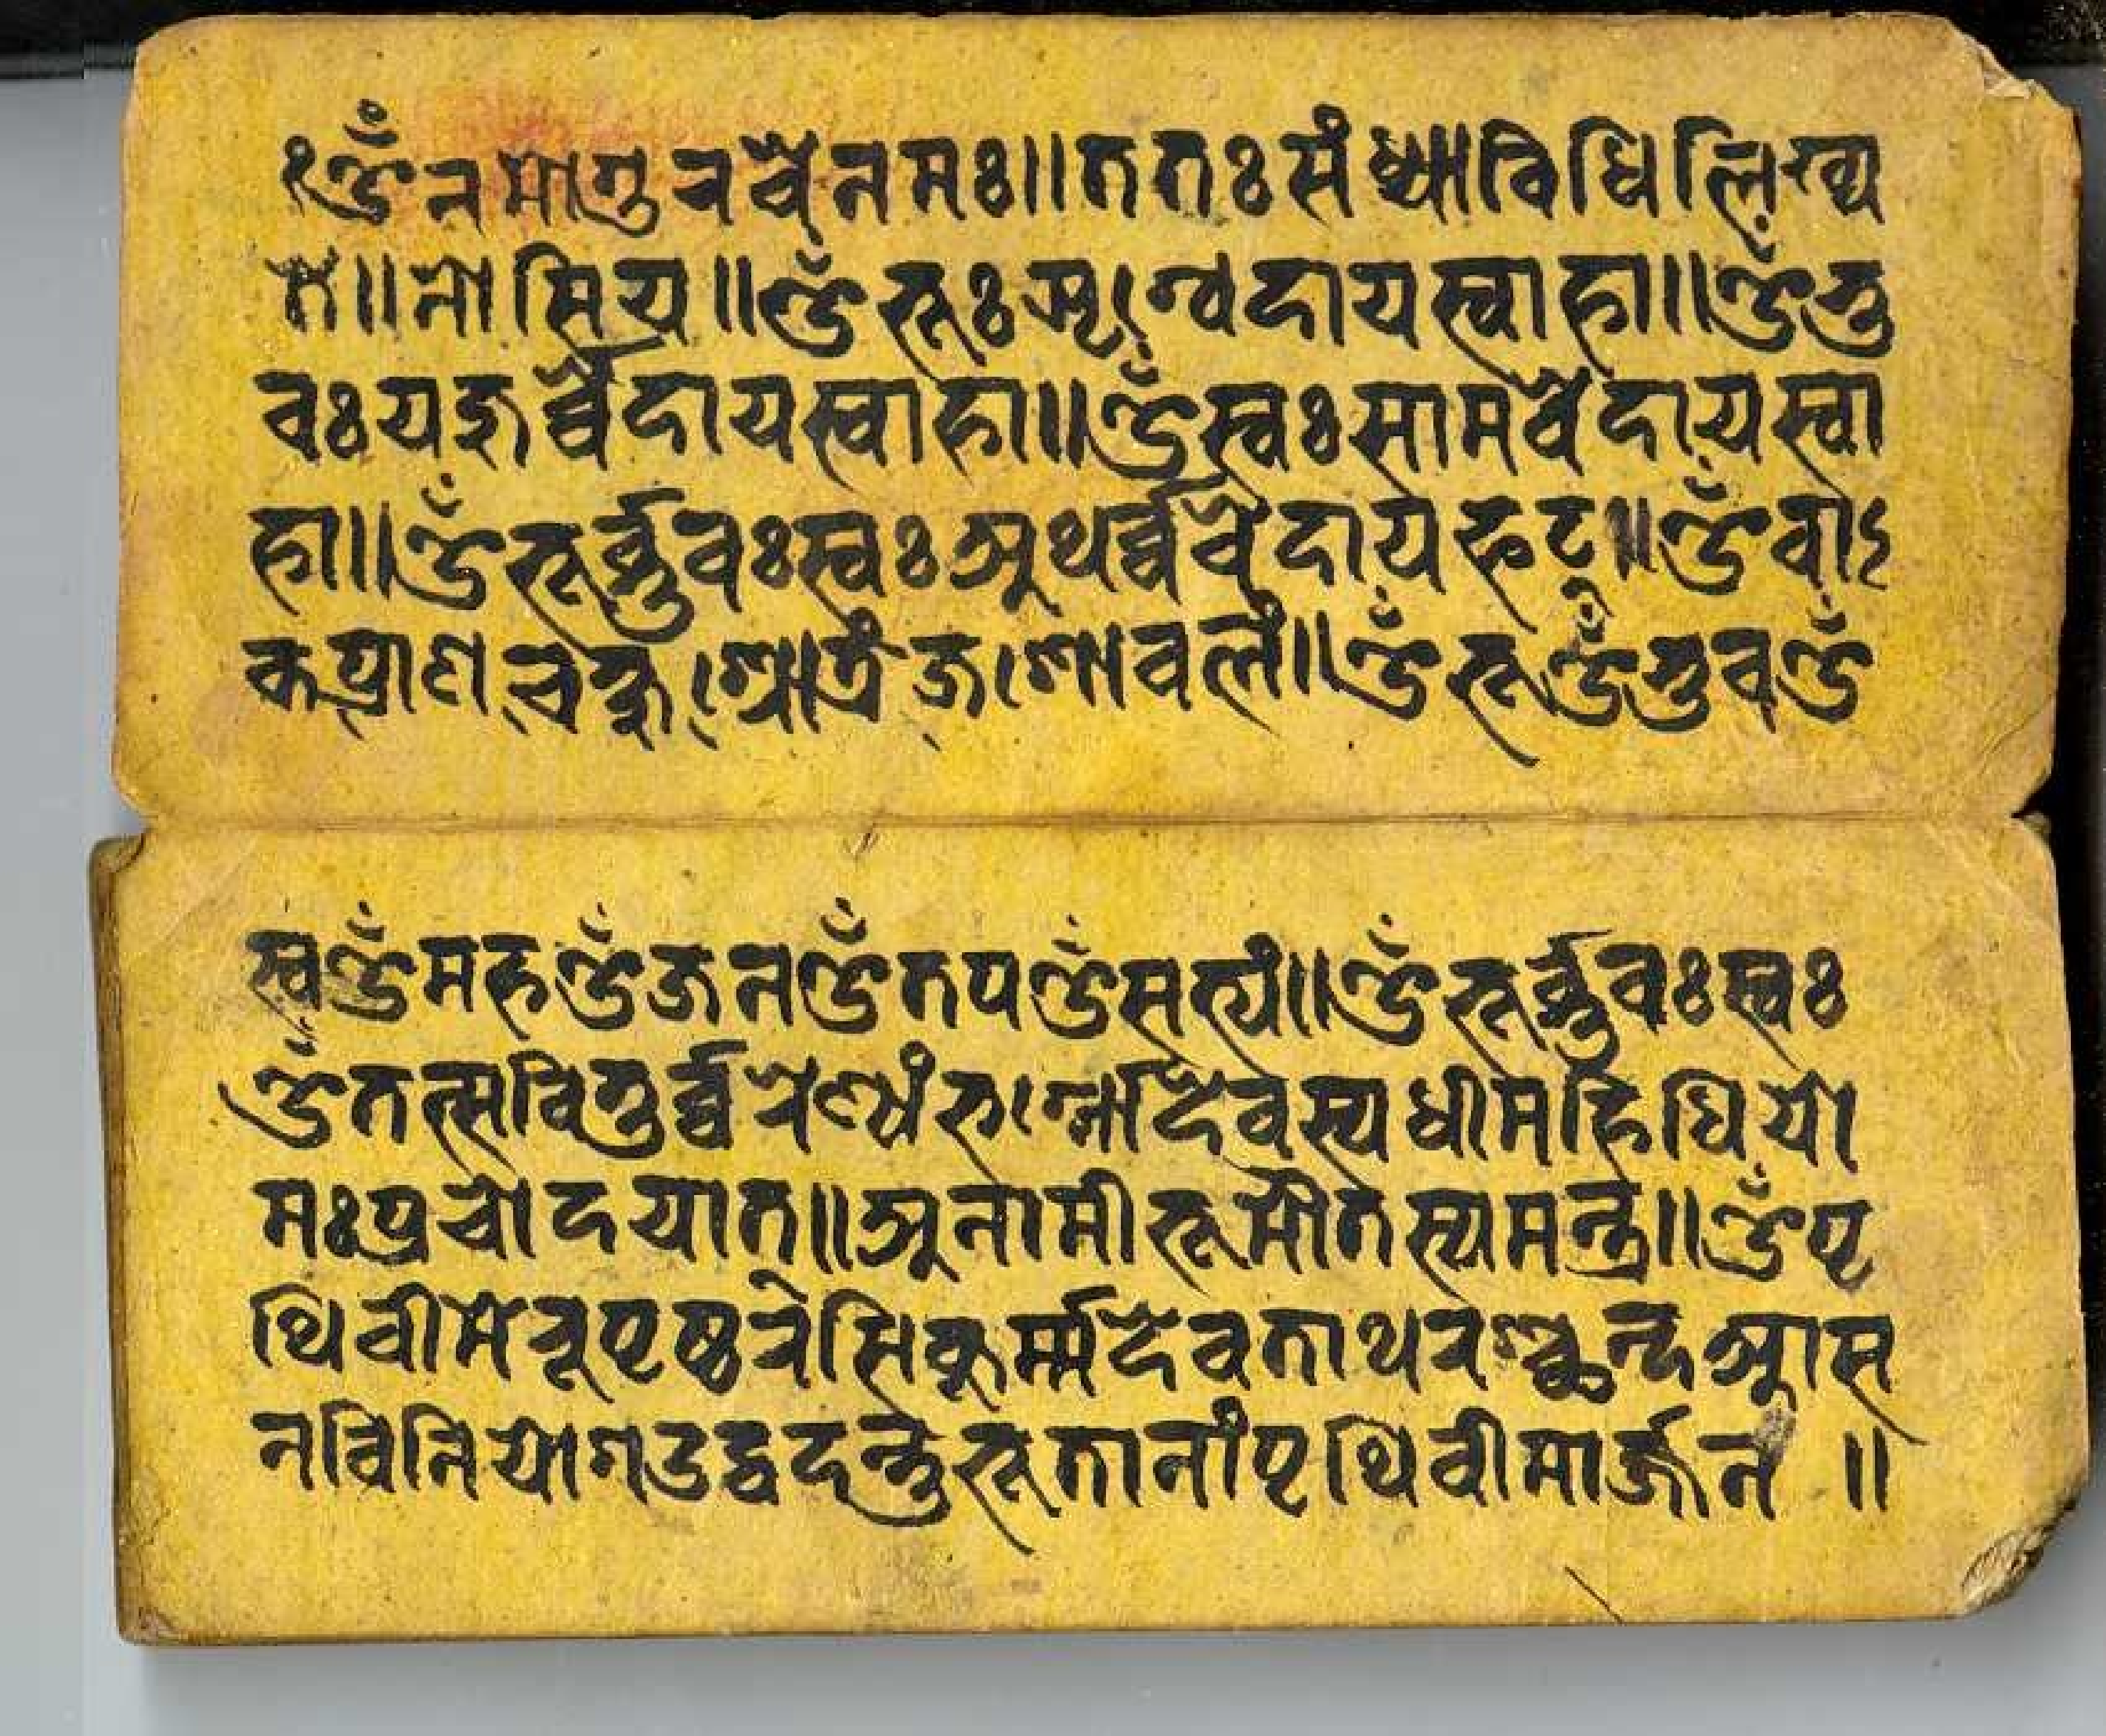 १ ॐ नमो गुरवे नमः ॥ ततः संध्याविधि लिख्य
ते ॥ नोसिय ॥ ॐ भूः ऋग्वेदाय स्वाहा ॥ ॐ भु
वः यजुर्व्वेदाय स्वाहा ॥ ॐ स्वः सामवेदाय स्वा
हा ॥ ॐ भूर्ब्भुवः स्वः अथर्व्ववेदाय फट् ॥ ॐ वाऽ
क प्राण चक्षु श्रोत्रं जशो वलं ॥ ॐ भू ॐ भुव ॐ
स्व ॐ मह ॐ जन ॐ तप ॐ सत्यं ॥ ॐ भूर्ब्भुवः स्वः
ॐ तत्सवितुर्व्वरेण्यं भर्ग्गो देवस्य धीमहि धियो
मः प्रचोदयात् ॥ अनामी भूमीतस्य मन्त्र ॥ ॐ पृ
थिवी मेरुपृष्ठ रेसि कूर्म्म देवताथर ञ्छन्द आस
न विनियोग उद्वदन्तु भूतानां पृथिवीमार्जन ॥